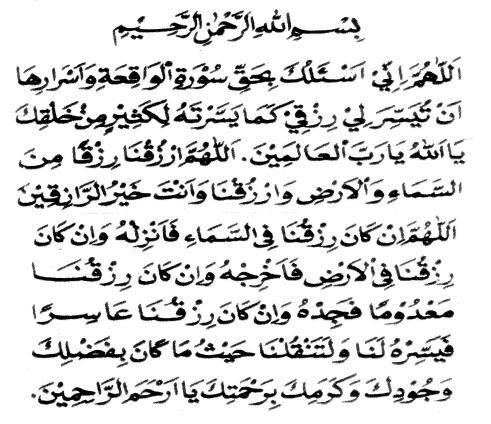 بِسْمِ اللهِ الرَّحْمٰنِ الرَّحِيْمِ
اَللّٰهُمَّ اِنِّيْ اَسْئَلُكَ بِحَقِّ سُوْرَةِ الْوَاقِعَةِ وَاَسْرَارِهَا
اَنْ تُيَسِّرَ لِيْ رِزْقِيْ كَمَا يَسَّرْتَهُ لِكَثِيْرٍ مِنْ خَلْقِكَ
يَا اَللهُ يَا رَبَّ الْعَالَمِيْنَ. اَللّٰهُمَّ ارْزُقْنَا رِزْقًا مِنَ
السَّمَاءِ وَالْاَرْضِ وَارْزُقْنَا وَاَنْتَ خَيْرُ الرَّازِقِيْنَ
اَللّٰهُمَّ اِنْ كَانَ رِزْقُنَا فِى السَّمَاءِ فَاَنْزِلْهُ وَاِنْ كَانَ
رِزْقُنَا فِى الْاَرْضِ فَاَخْرِجْهُ وَاِنْ كَانَ رِزْقُنَا
مَعْدُوْمًا فَجِدْهُ وَاِنْ كَانَ رِزْقُنَا عَاسِرًا
فَيَسِّرْهُ لَنَا وَلْتَنْقُلْنَا حَيْثُ مَا كَانَ بِفَضْلِكَ
وَجُوْدِكَ وَكَرَمِكَ بِرَحْمَتِكَ يَا اَرْحَمَ الرَّاحِمِيْنَ.